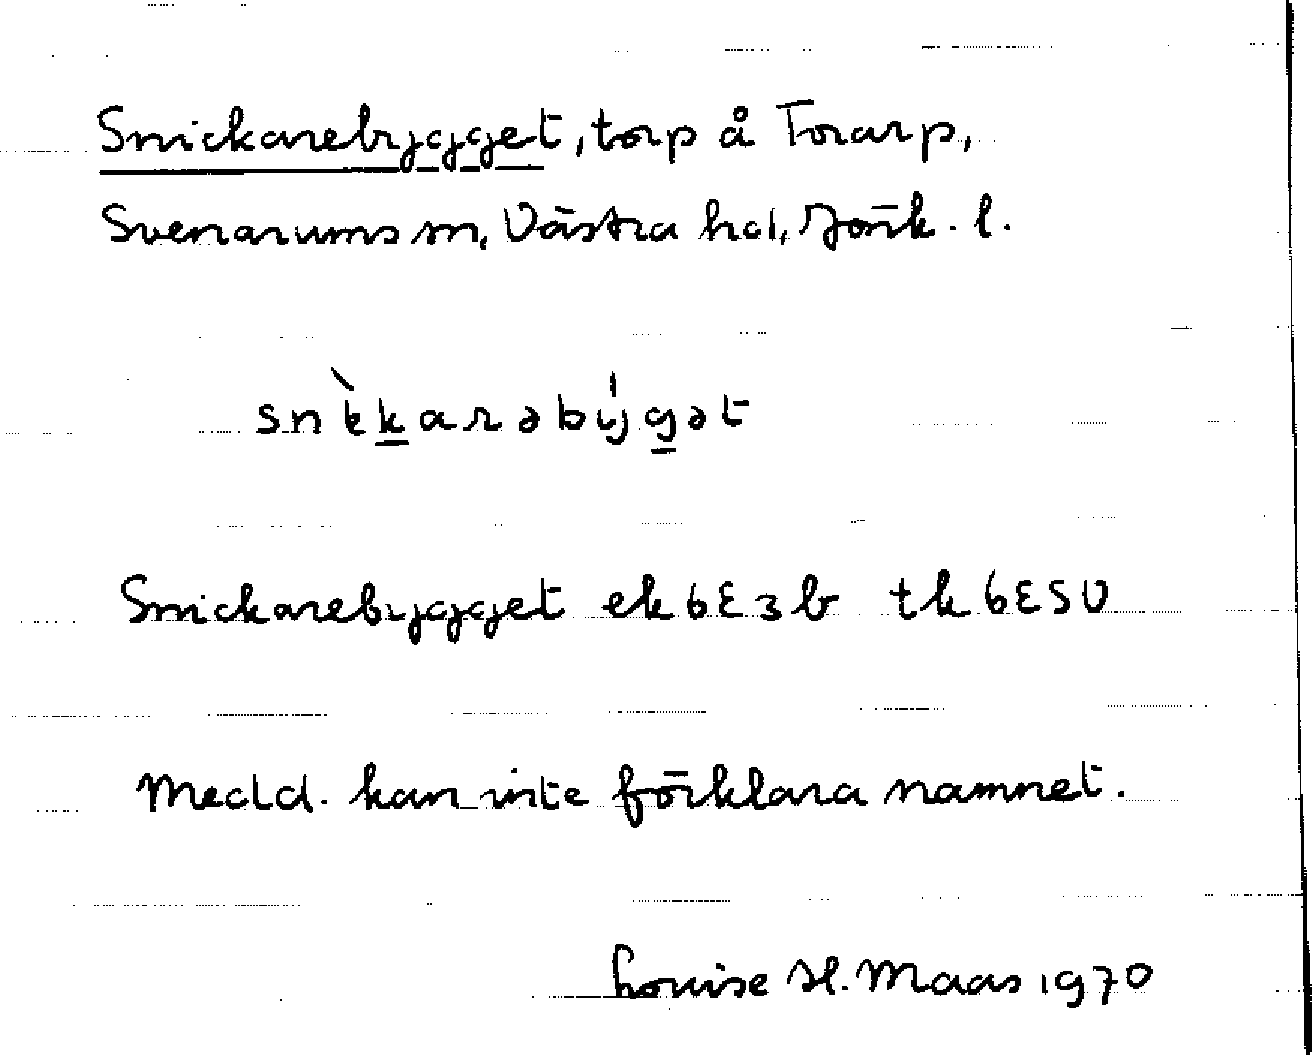 Smickarebygget, torp å Torarp,
Svenarums sn, Västra hd, Jönk. l.
snèkarəbýgət
Smickarebygget ek 6E3b tk 6ESV
Medd. kan inte förklara namnet.
Louise H. Maas 1970